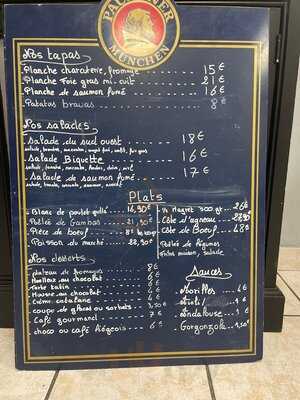 PAULANER
MÜNCHEN
Nos tapas
Planche charcuterie, fromage 15€
Planche Foie gras mi-cuit 21€
Planche de saumon fumé 16€
Patatas bravas 8€
Nos salades
Salade du sud ouest 18€
Salade Biquette 16€
Salade de saumon fumé 17€
Plats
Blanc de poulet grillé 16,90€
Poêlée de Gambas 21,50€
Pièce de boeuf
Poisson du marché 22,50€
Magret 300 gr 26€
Côte d'agneau 22,90
Côte de Boeuf
Poêlée de légumes
Frites maison, salade
Nos desserts
plateau de fromages 8€
Moelleux au chocolat 6€
Tarte tatin 6€
Mousse au chocolat 6€
Crème catalane 6€
coupe de glaces ou sorbets 3,50€
Café gourmand 7€
choco ou café liégeois 6€
Sauces
Morilles 4€
Aïoli 1€
Andalouse 1€
Gorgonzola 1,50€